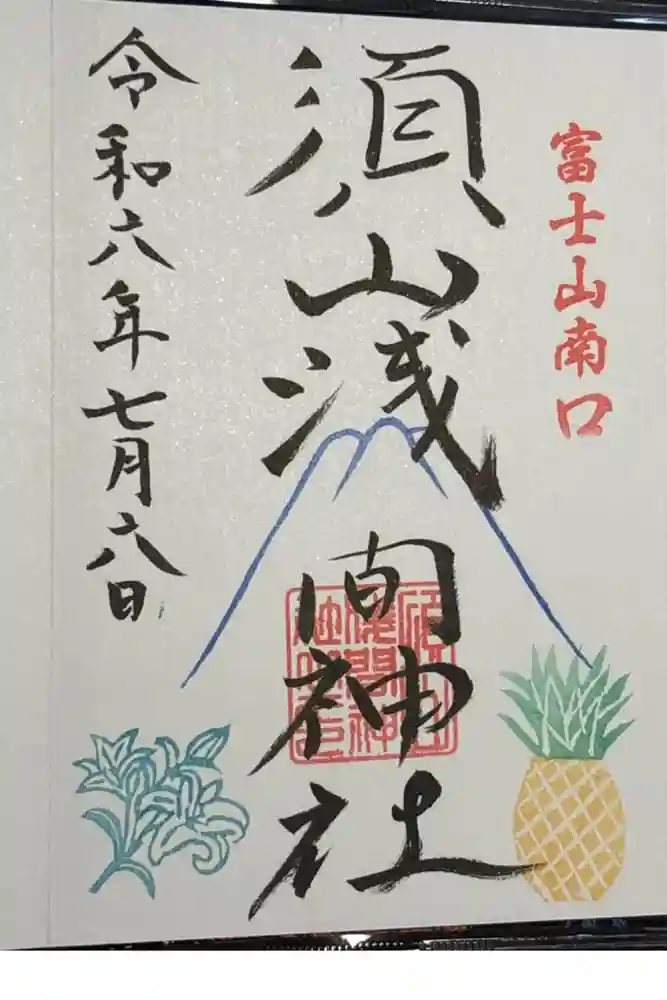 富士山南口
須山浅間神社
令和六年七月六日